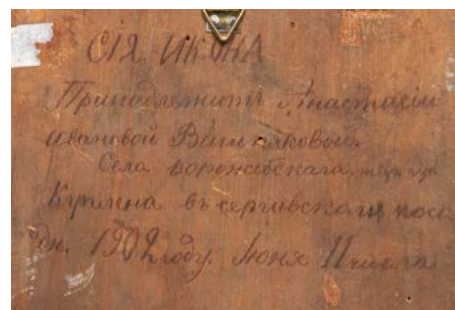 СІЯ. ИКОНА
Принадлежитъ Анастасіи
Ивановой Вишняковой.
Села
Куплена въ сергивскомъ поса
дѣ. 1902 году. Іюня 11 числа